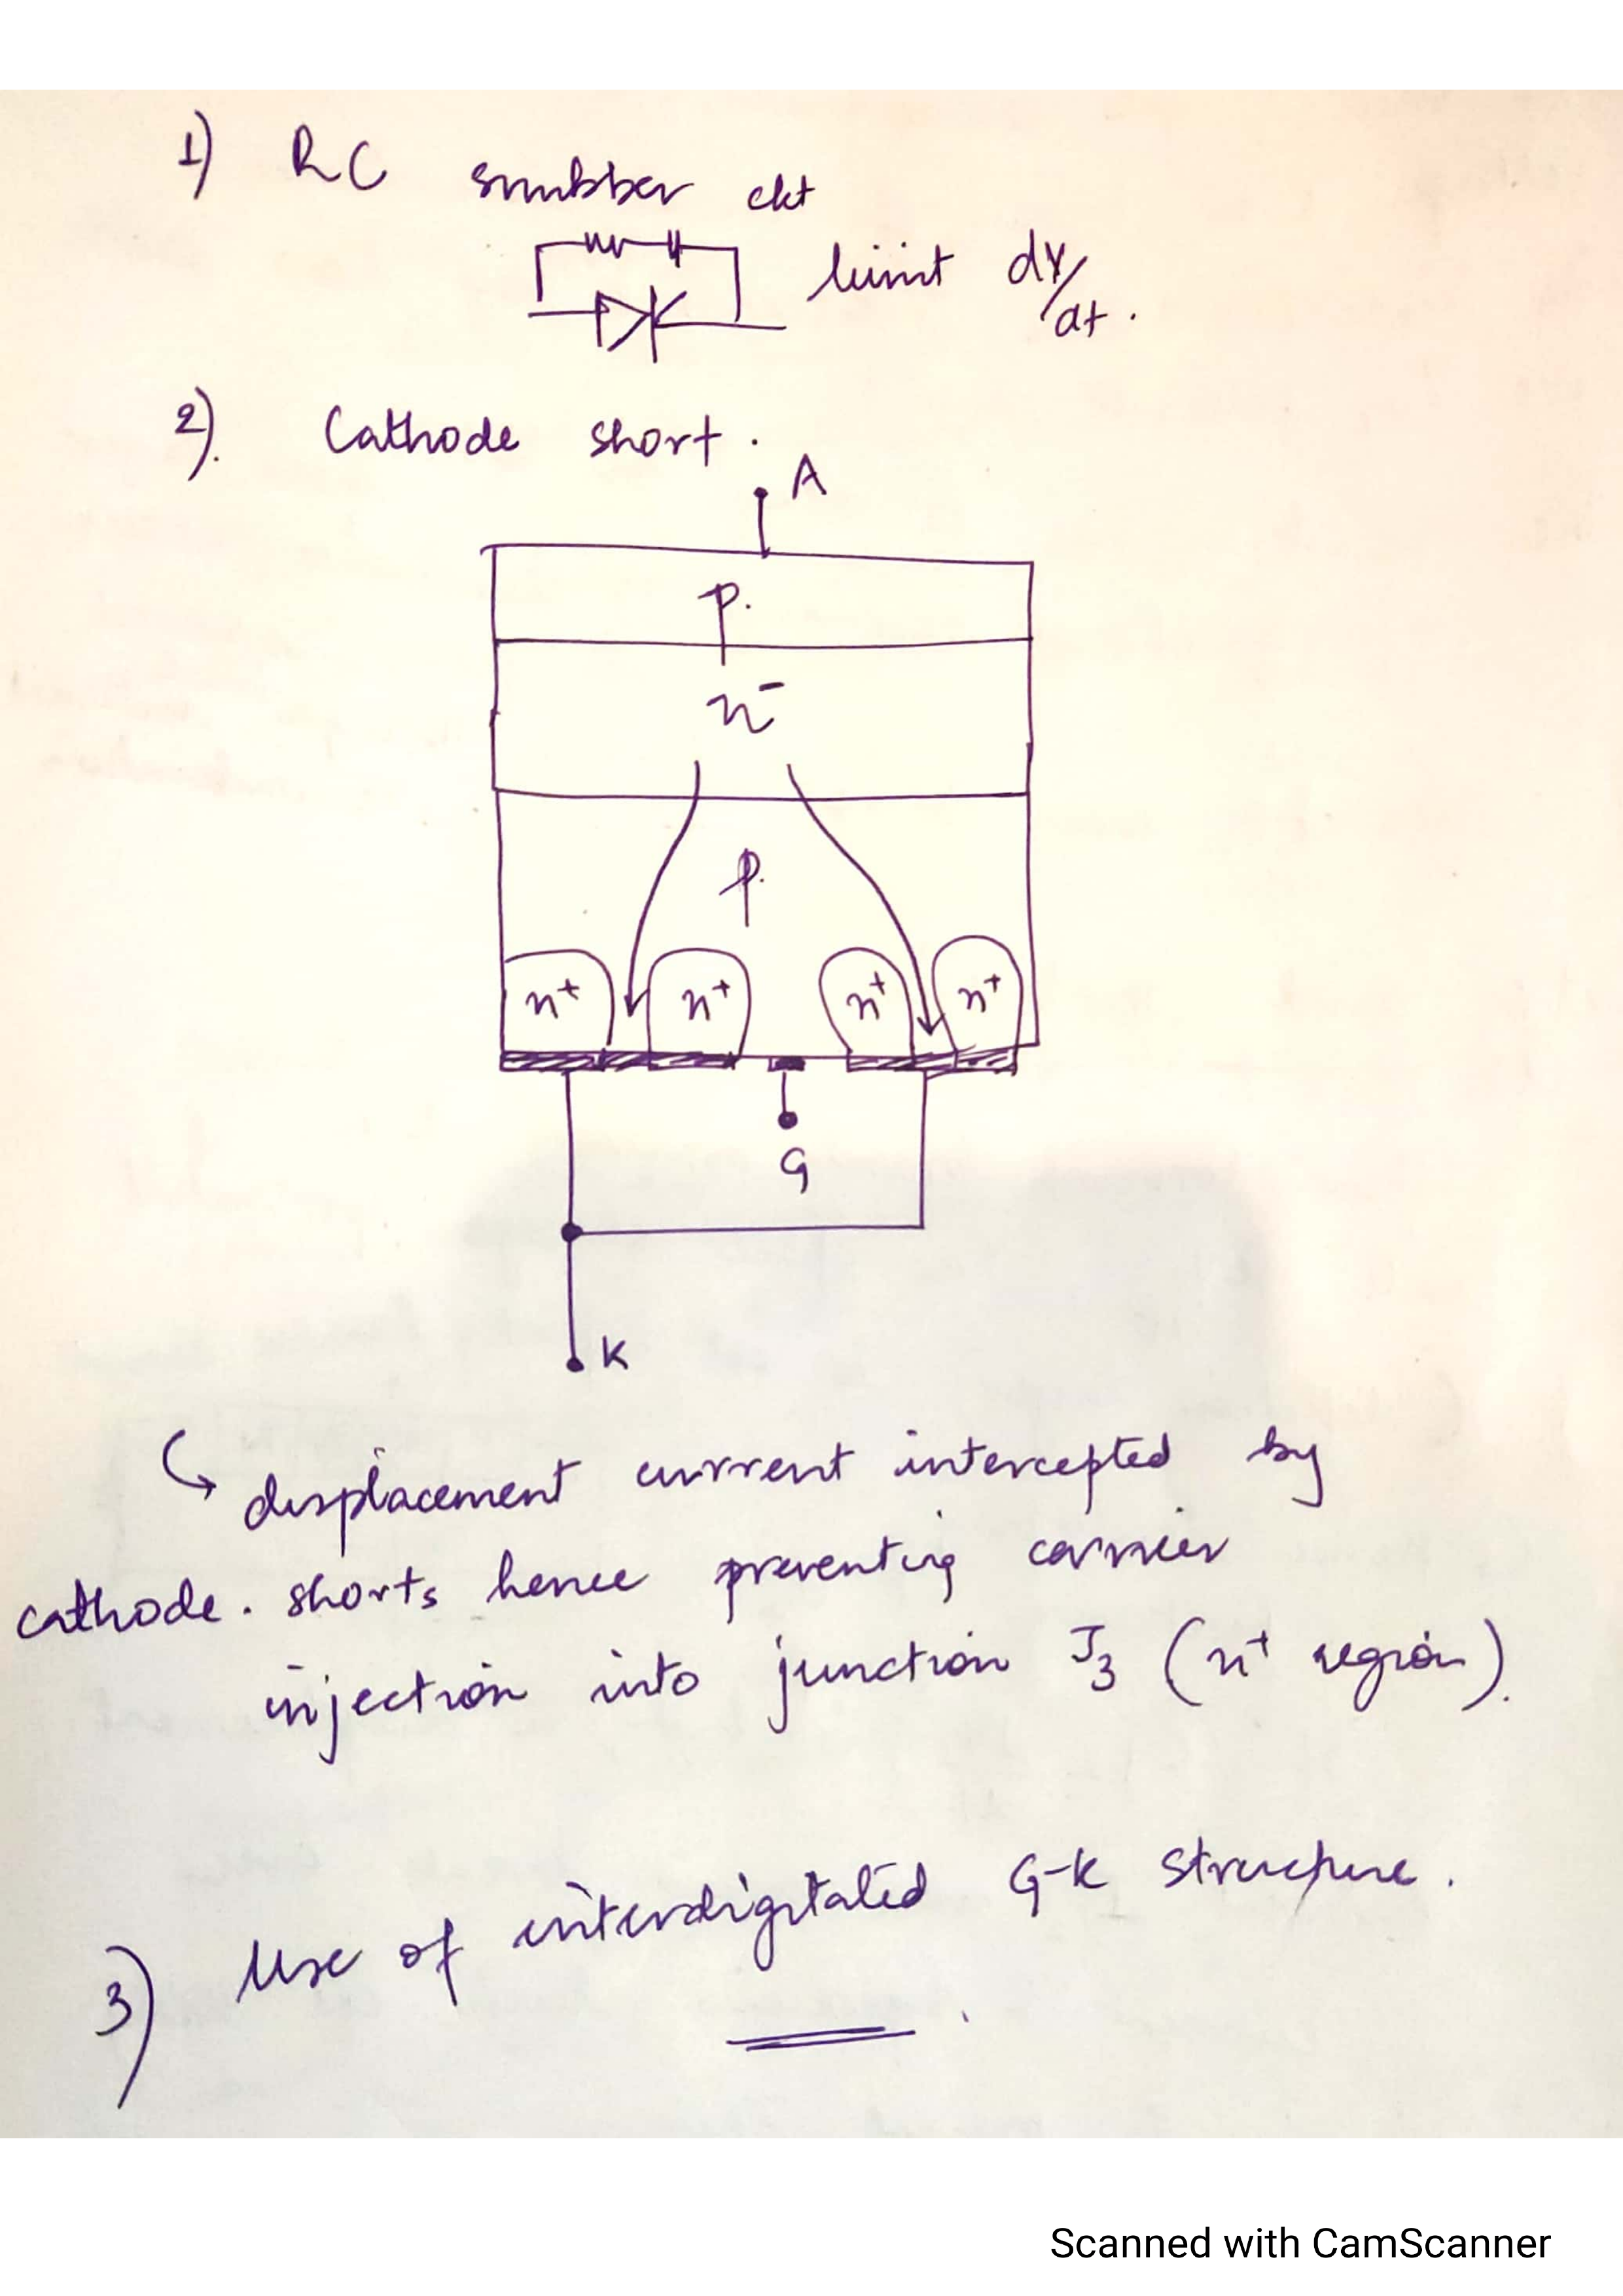 1) RC snubber ckt
limit dv/dt.
2). Cathode short.
A
p.
n⁻
p.
n⁺ n⁺ n⁺ n⁺
G
K
↳ displacement current intercepted by
cathode. shorts hence preventing carrier
injection into junction J₃ (n⁺ region).
3) Use of interdigitated G-K structure.
Scanned with CamScanner